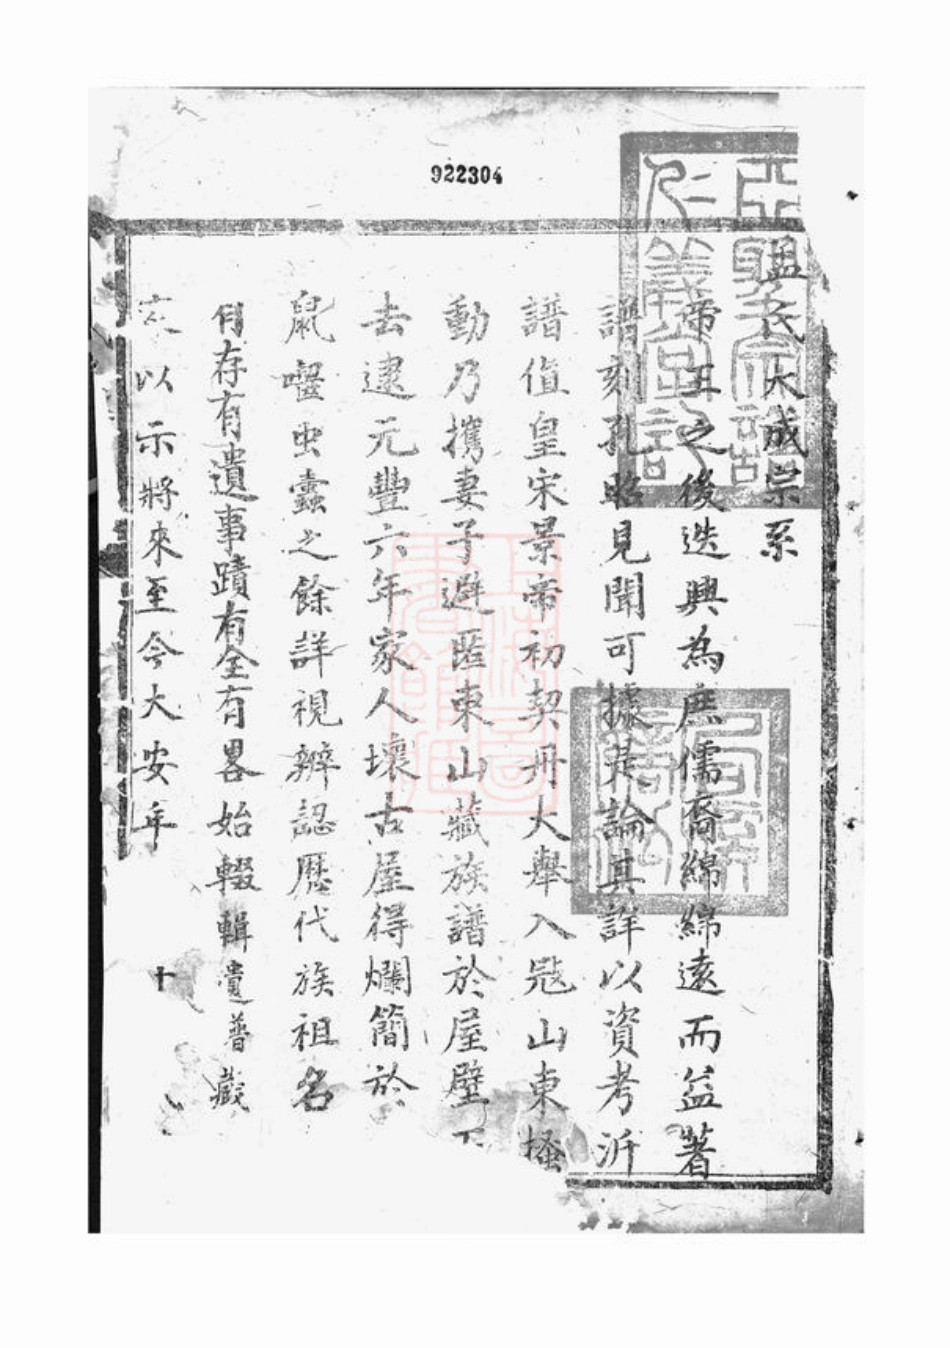 922304
孟氏大成宗系
帝王之後迭興為庶儒裔綿綿遠而益著
譜刻孔昭見聞可據其論真詳以資考泝
譜值皇宋景帝初契丹大舉入寇山東搔
動乃攜妻子避匿東山藏族譜於屋壁
去逮元豐六年家人壞古屋得爛簡於
鼠嚙虫蠹之餘詳視辨認歷代族祖名
有遺事蹟有全有畧始輟輯
以示將來至今大安年
十